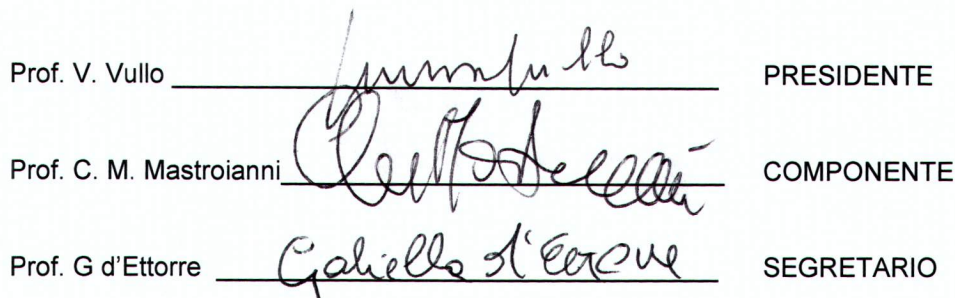 Prof. V. Vullo PRESIDENTE
Prof. C. M. Mastroianni COMPONENTE
Prof. G d'Ettorre Gabriella d'Ettorre SEGRETARIO